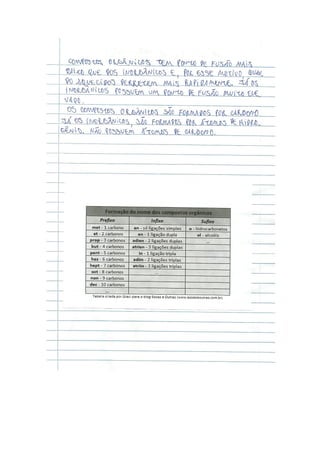 COMPOSTOS ORGÂNICOS TEM PONTO DE FUSÃO MAIS
BAIXO QUE DOS INORGÂNICOS E, POR ESSE MOTIVO, QUAN
DO AQUECIDOS DERRETEM MAIS RAPIDAMENTE. JÁ OS
INORGÂNICOS POSSUEM UM PONTO DE FUSÃO MUITO ELE
VADO.
OS COMPOSTOS ORGÂNICOS SÃO FORMADOS POR CARBONO
JÁ OS INORGÂNICOS, SÃO FORMADOS POR ÁTOMOS DE HIDRO.
GÊNIO. NÃO POSSUEM ÁTOMOS DE CARBONO.
Formação do nome dos compostos orgânicos
Prefixo Infixo Sufixo
met - 1 carbono an - só ligações simples o - hidrocarbonetos
et - 2 carbonos en - 1 ligação dupla ol - alcoóis
prop - 3 carbonos adien - 2 ligações duplas
but - 4 carbonos atrien - 3 ligações duplas
pent - 5 carbonos in - 1 ligação tripla
hex - 6 carbonos adiin - 2 ligações triplas
hept - 7 carbonos atriin - 3 ligações triplas
oct - 8 carbonos
non - 9 carbonos
dec - 10 carbonos
Tabela criada por para o blog